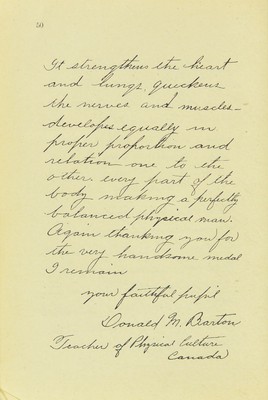 50
It strengthens the heart
and lungs, quickens
the nerves and muscles—
developes equally in
proper proportion and
relation one to the
other every part of the
body making a perfectly
balanced physical man.
Again thanking you for
the very handsome medal
I remain
your faithful pupil
Donald M. Barton
Teacher of Physical Culture
Canada